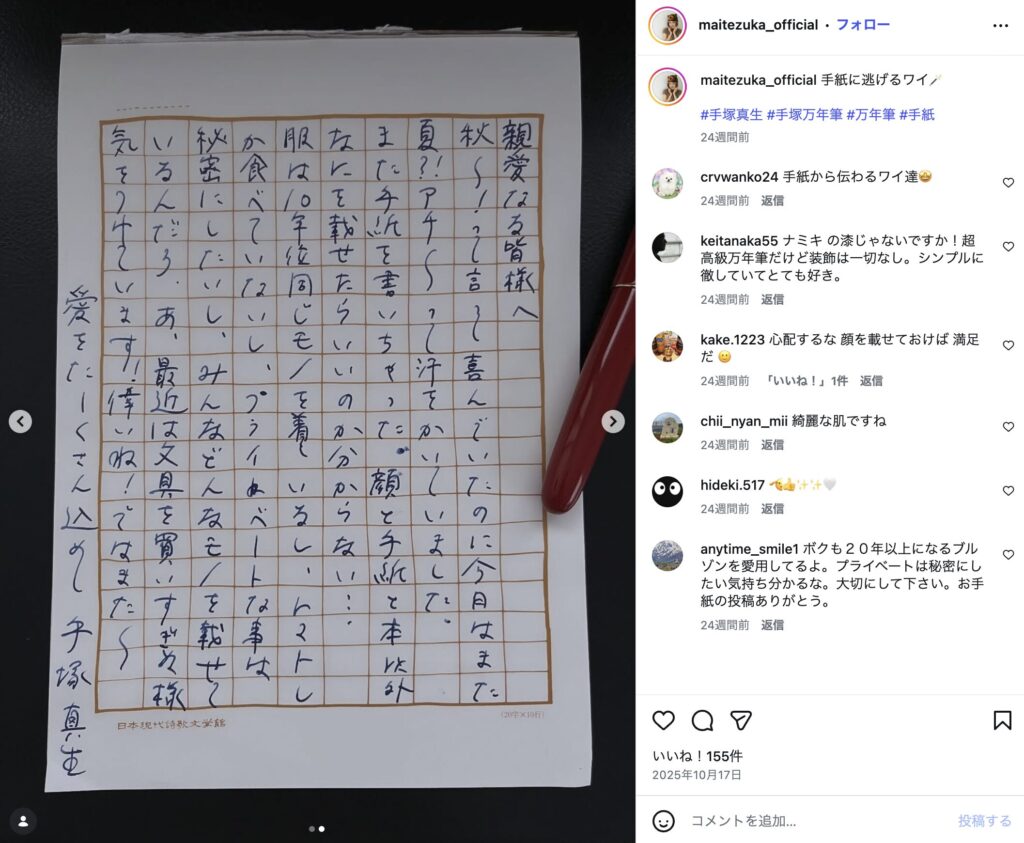 親愛なる皆様へ
秋〜!って言って喜んでいたのに今月はまた
夏?!アチ〜って汗をかいていました。
また手紙を書いちゃった。顔と手紙と本以外
なにを載せたらいいのか分からない…。
服は10年後同じモノを着ているし、レストし
か食べていないし、プライベートな事は
秘密にしたいし、みんなどんなモノを載せて
いるんだろ。あ、最近は文具を買いすぎぬ様
気をつけています!偉いね!ではまた〜
愛をたーくさん込めて 手塚真生
日本現代詩歌文学館
(20字×10行)
maitezuka_official・フォロー
maitezuka_official 手紙に逃げるワイ🪄
#手塚真生 #手塚万年筆 #万年筆 #手紙
24週間前
crvwanko24 手紙から伝わるワイ達🤩
24週間前 返信
keitanaka55 ナミキ の漆じゃないですか！超
高級万年筆だけど装飾は一切なし。シンプルに
徹していてとても好き。
24週間前 返信
kake.1223 心配するな 顔を載せておけば 満足
だ 😊
24週間前 「いいね！」1件 返信
chii_nyan_mii 綺麗な肌ですね
24週間前 返信
hideki.517 🫡👍✨✨🤍
24週間前 返信
anytime_smile1 ボクも２０年以上になるブル
ゾンを愛用してるよ。プライベートは秘密にし
たい気持ち分かるな。大切にして下さい。お手
紙の投稿ありがとう。
24週間前 返信
いいね！155件
2025年10月17日
コメントを追加...
投稿する